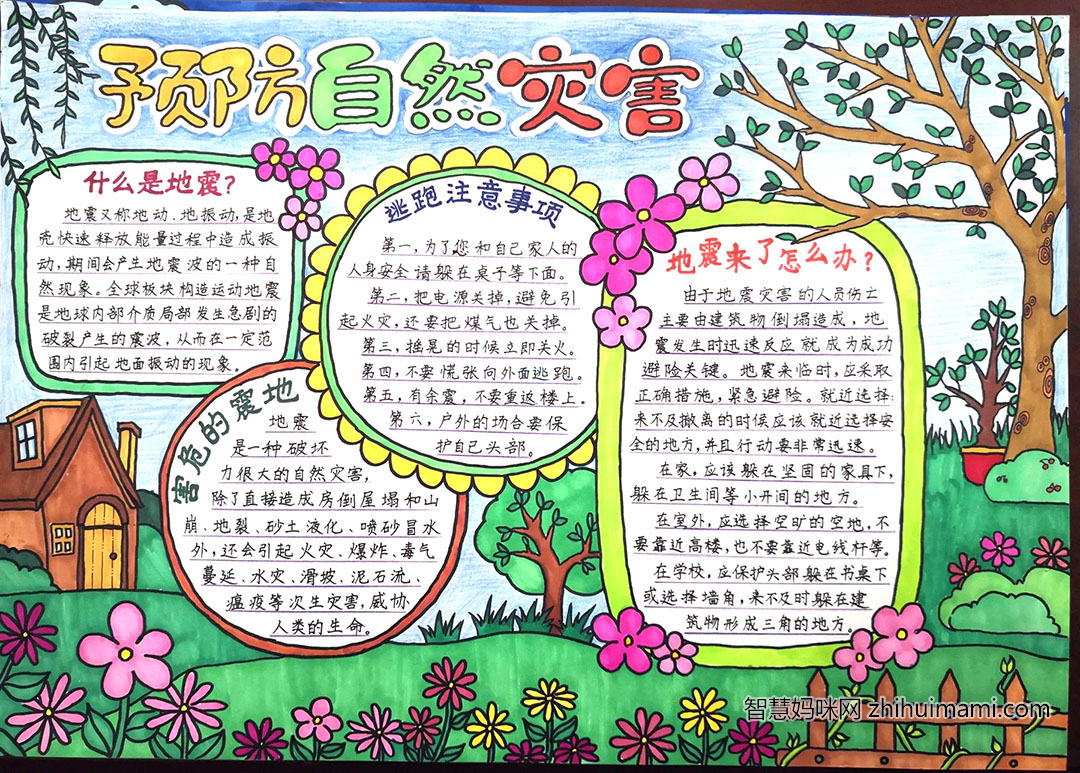 预防自然灾害
什么是地震？
地震又称地动、地振动，是地
壳快速释放能量过程中造成振
动，期间会产生地震波的一种自
然现象。全球板块构造运动地震
是地球内部介质局部发生急剧的
破裂产生的震波，从而在一定范
围内引起地面振动的现象。
逃跑注意事项
第一，为了您和自己家人的
人身安全请躲在桌子等下面。
第二，把电源关掉，避免引
起火灾，还要把煤气也关掉。
第三，摇晃的时候立即关火。
第四，不要慌张向外面逃跑。
第五，有余震，不要重返楼上。
第六，户外的场合要保
护自己头部。
害危的震地
地震
是一种破坏
力很大的自然灾害，
除了直接造成房倒屋塌和山
崩、地裂、砂土液化、喷砂冒水
外，还会引起火灾、爆炸、毒气
蔓延、水灾、滑坡、泥石流、
瘟疫等次生灾害，威协
人类的生命。
地震来了怎么办？
由于地震灾害的人员伤亡
主要由建筑物倒塌造成，地
震发生时迅速反应就成为成功
避险关键。地震来临时，应采取
正确措施，紧急避险。就近选择
来不及撤离的时候应该就近选择安
全的地方，并且行动要非常迅速。
在家，应该躲在坚固的家具下，
躲在卫生间等小开间的地方。
在室外，应选择空旷的空地，不
要靠近高楼，也不要靠近电线杆等。
在学校，应保护头部躲在书桌下
或选择墙角，来不及时躲在建
筑物形成三角的地方。
智慧妈咪网 zhihuimami.com